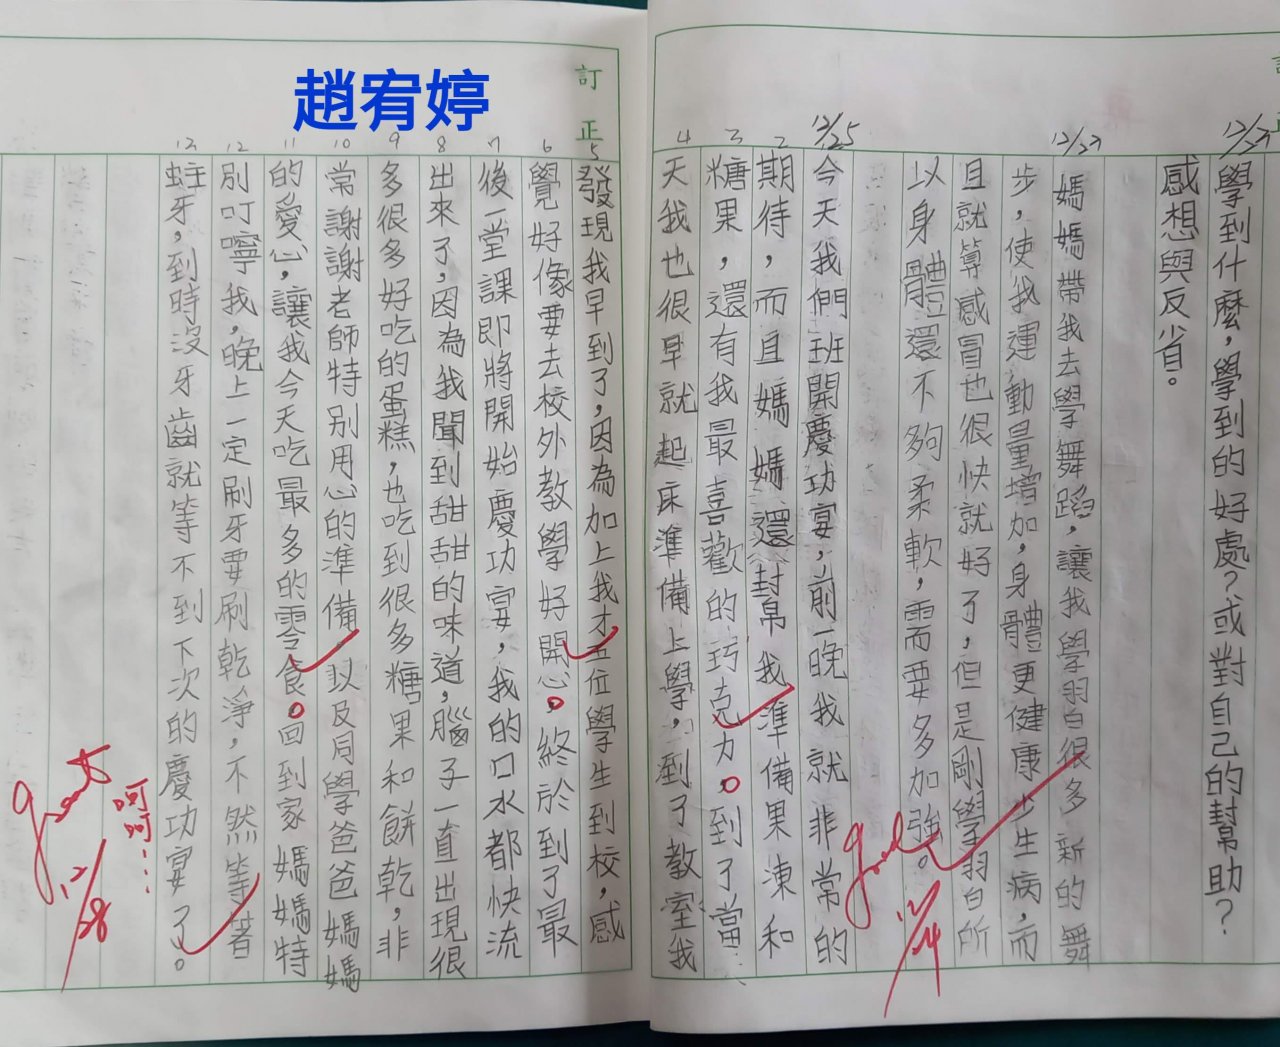 12/27
學到什麼，學到的好處？或對自己的幫助？
感想與反省。
12/27
媽媽帶我去學舞蹈，讓我學習很多新的舞
步，使我運動量增加，身體更健康少生病，而
且就算感冒也很快就好了，但是剛學習所
以身體還不夠柔軟，需要多加強。
good
12/24
12/25
今天我們班開慶功宴，前一晚我就非常的
2
期待，而且媽媽還封帛我準備果凍和
3
糖果，還有我最喜歡的巧克力。到了當
4
天我也很早就起床準備上學，到了教室我
訂正
趙宥婷
5
發現我早到了，因為加上我才五位學生到校，感
6
覺好像要去校外教學好開心。終於到了最
7
後一堂課即將開始慶功宴，我的口水都快流
8
出來了，因為我聞到甜甜的味道，腦子一直出現很
9
多很多好吃的蛋糕，也吃到很多糖果和餅乾，非
10
常謝謝老師特別用心的準備，以及同學爸爸媽媽
11
的愛心，讓我今天吃最多的零食。回到家媽媽特
12
別叮嚀我，晚上一定刷牙要刷乾淨，不然等著
13
蛀牙，到時沒牙齒就等不到下次的慶功宴了。
呵呵……
great
12/28